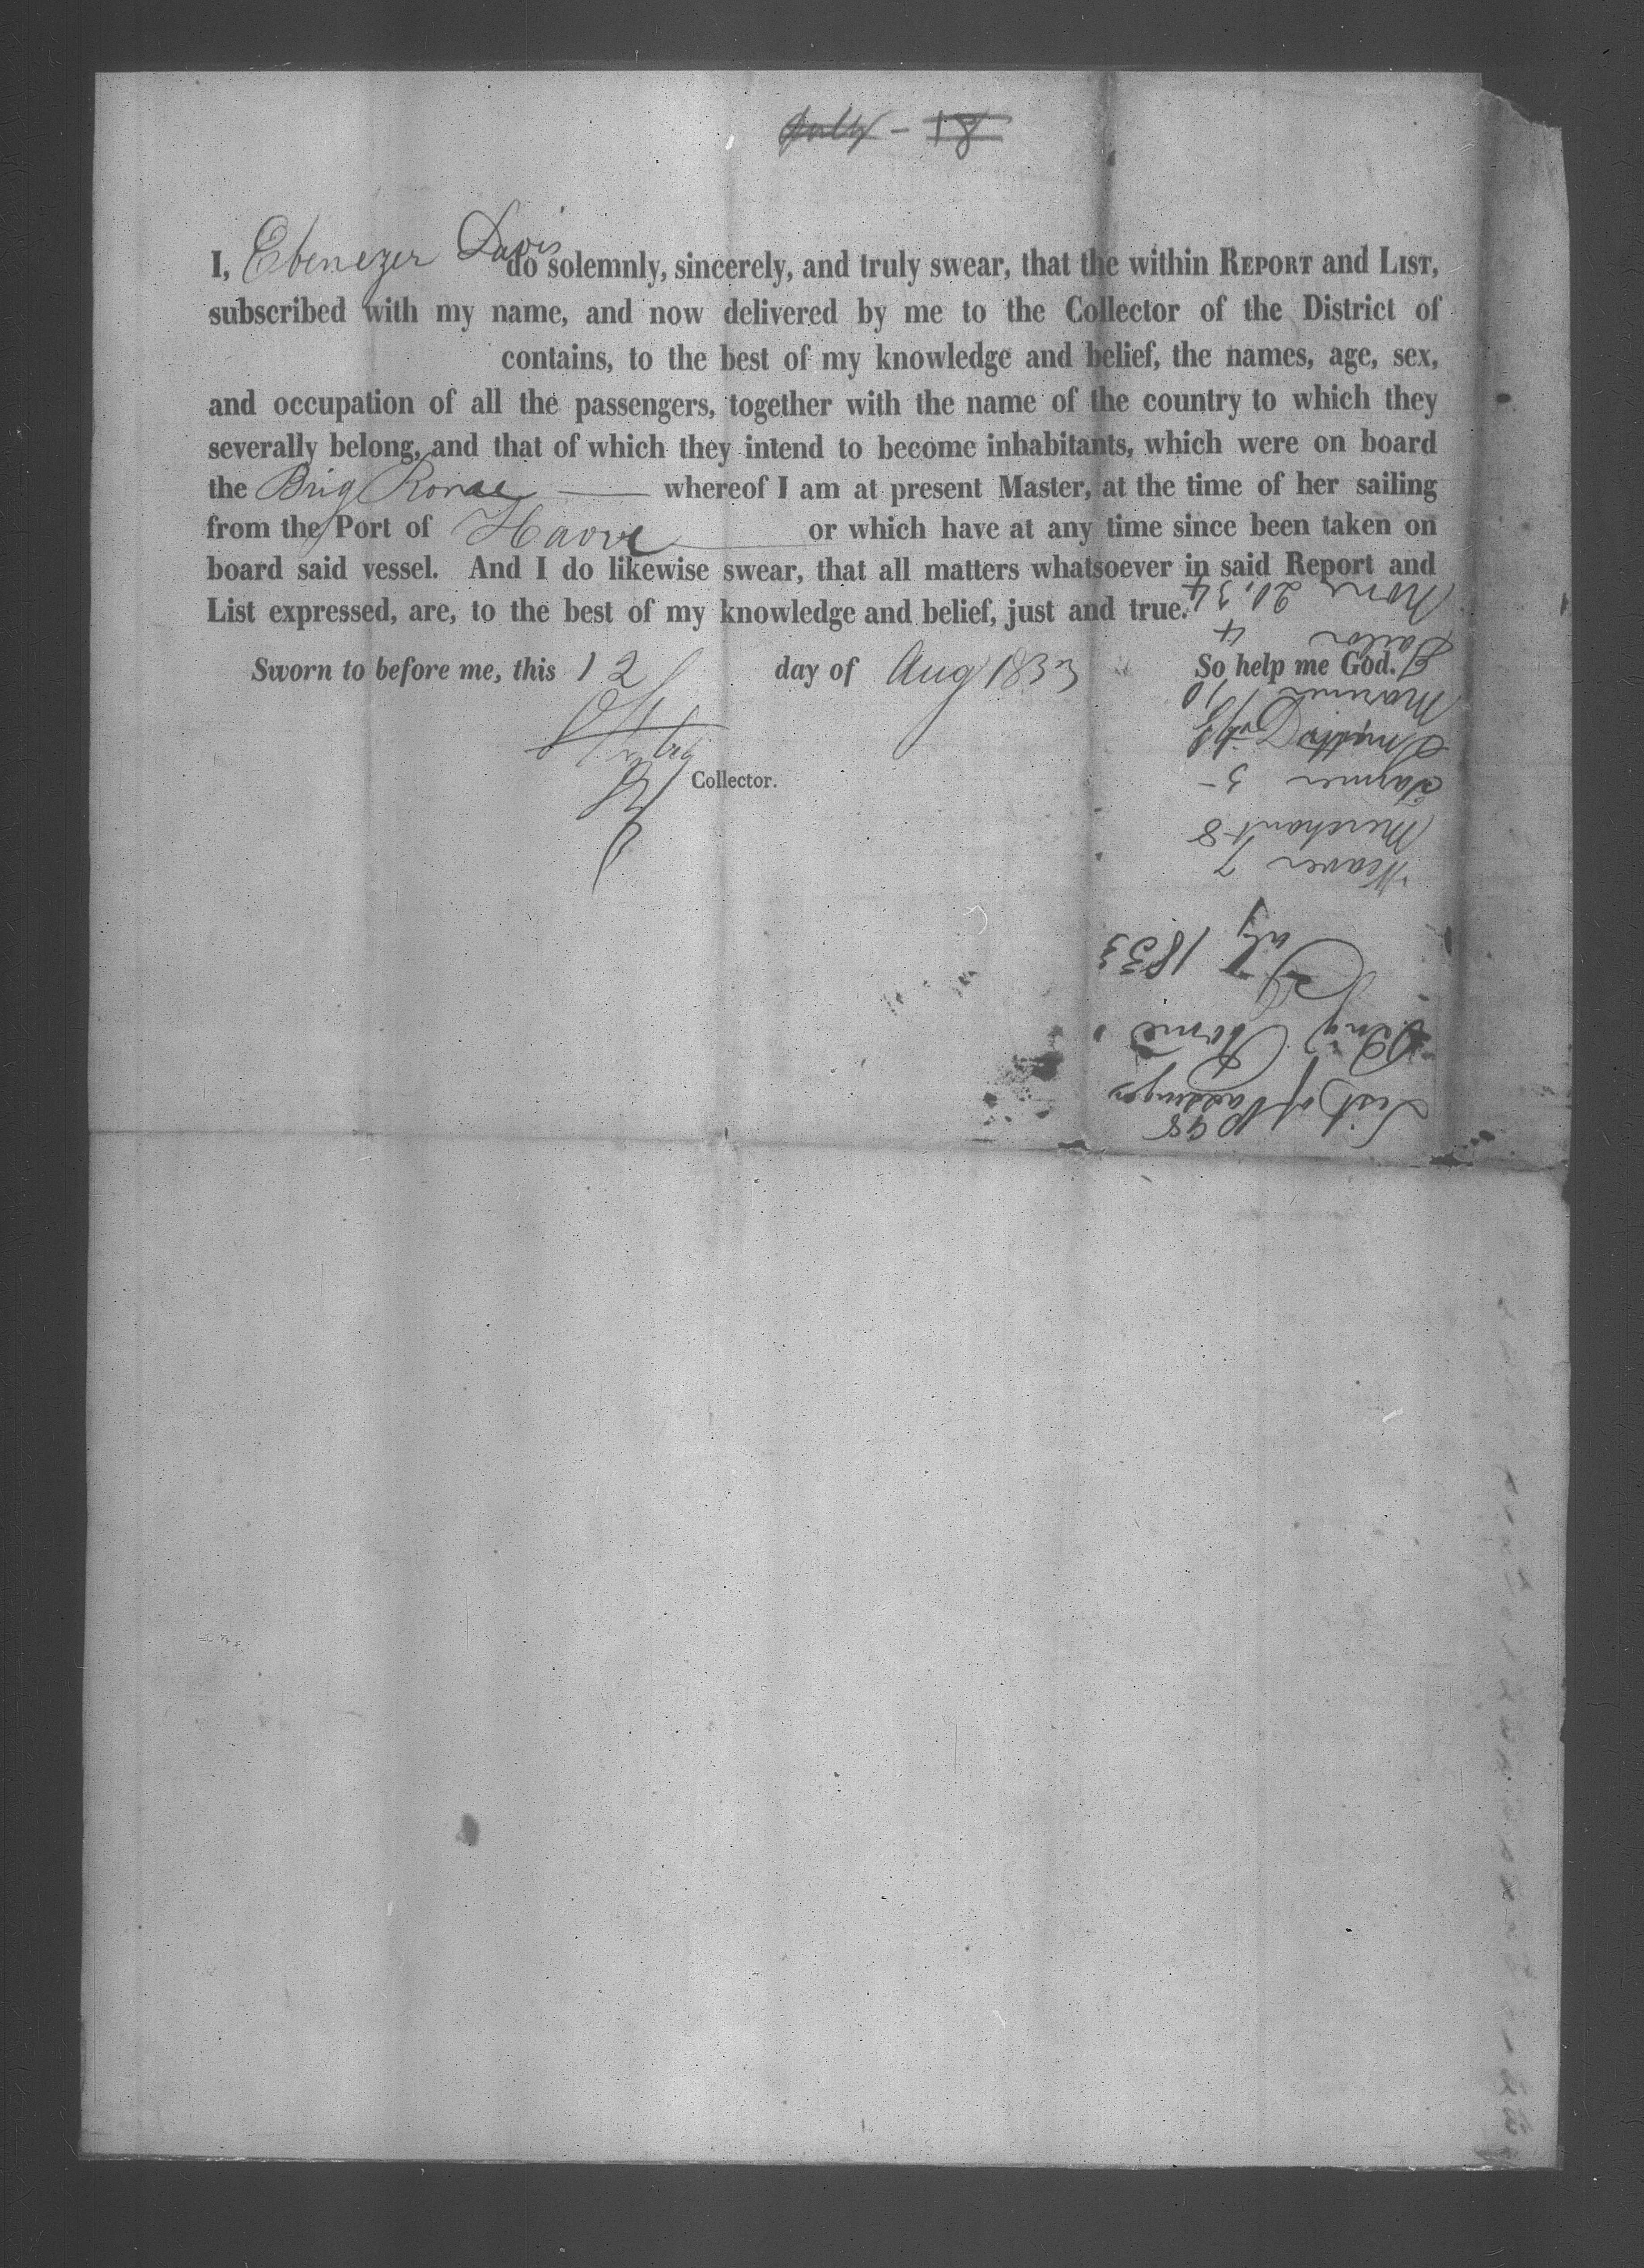 July - 18
I, Ebenezer Davis do solemnly, sincerely, and truly swear, that the within REPORT and LIST,
subscribed with my name, and now delivered by me to the Collector of the District of
contains, to the best of my knowledge and belief, the names, age, sex,
and occupation of all the passengers, together with the name of the country to which they
severally belong, and that of which they intend to become inhabitants, which were on board
the Brig Rome whereof I am at present Master, at the time of her sailing
from the Port of Havre or which have at any time since been taken on
board said vessel. And I do likewise swear, that all matters whatsoever in said Report and
List expressed, are, to the best of my knowledge and belief, just and true.
Sworn to before me, this 12 day of Aug 1833 So help me God.
Collector.
98
List of Passengers
Brig Rome
July 1833
Weaver 7
Merchant 8
Farmer 5-
Mariner 10
4
None 20, 34